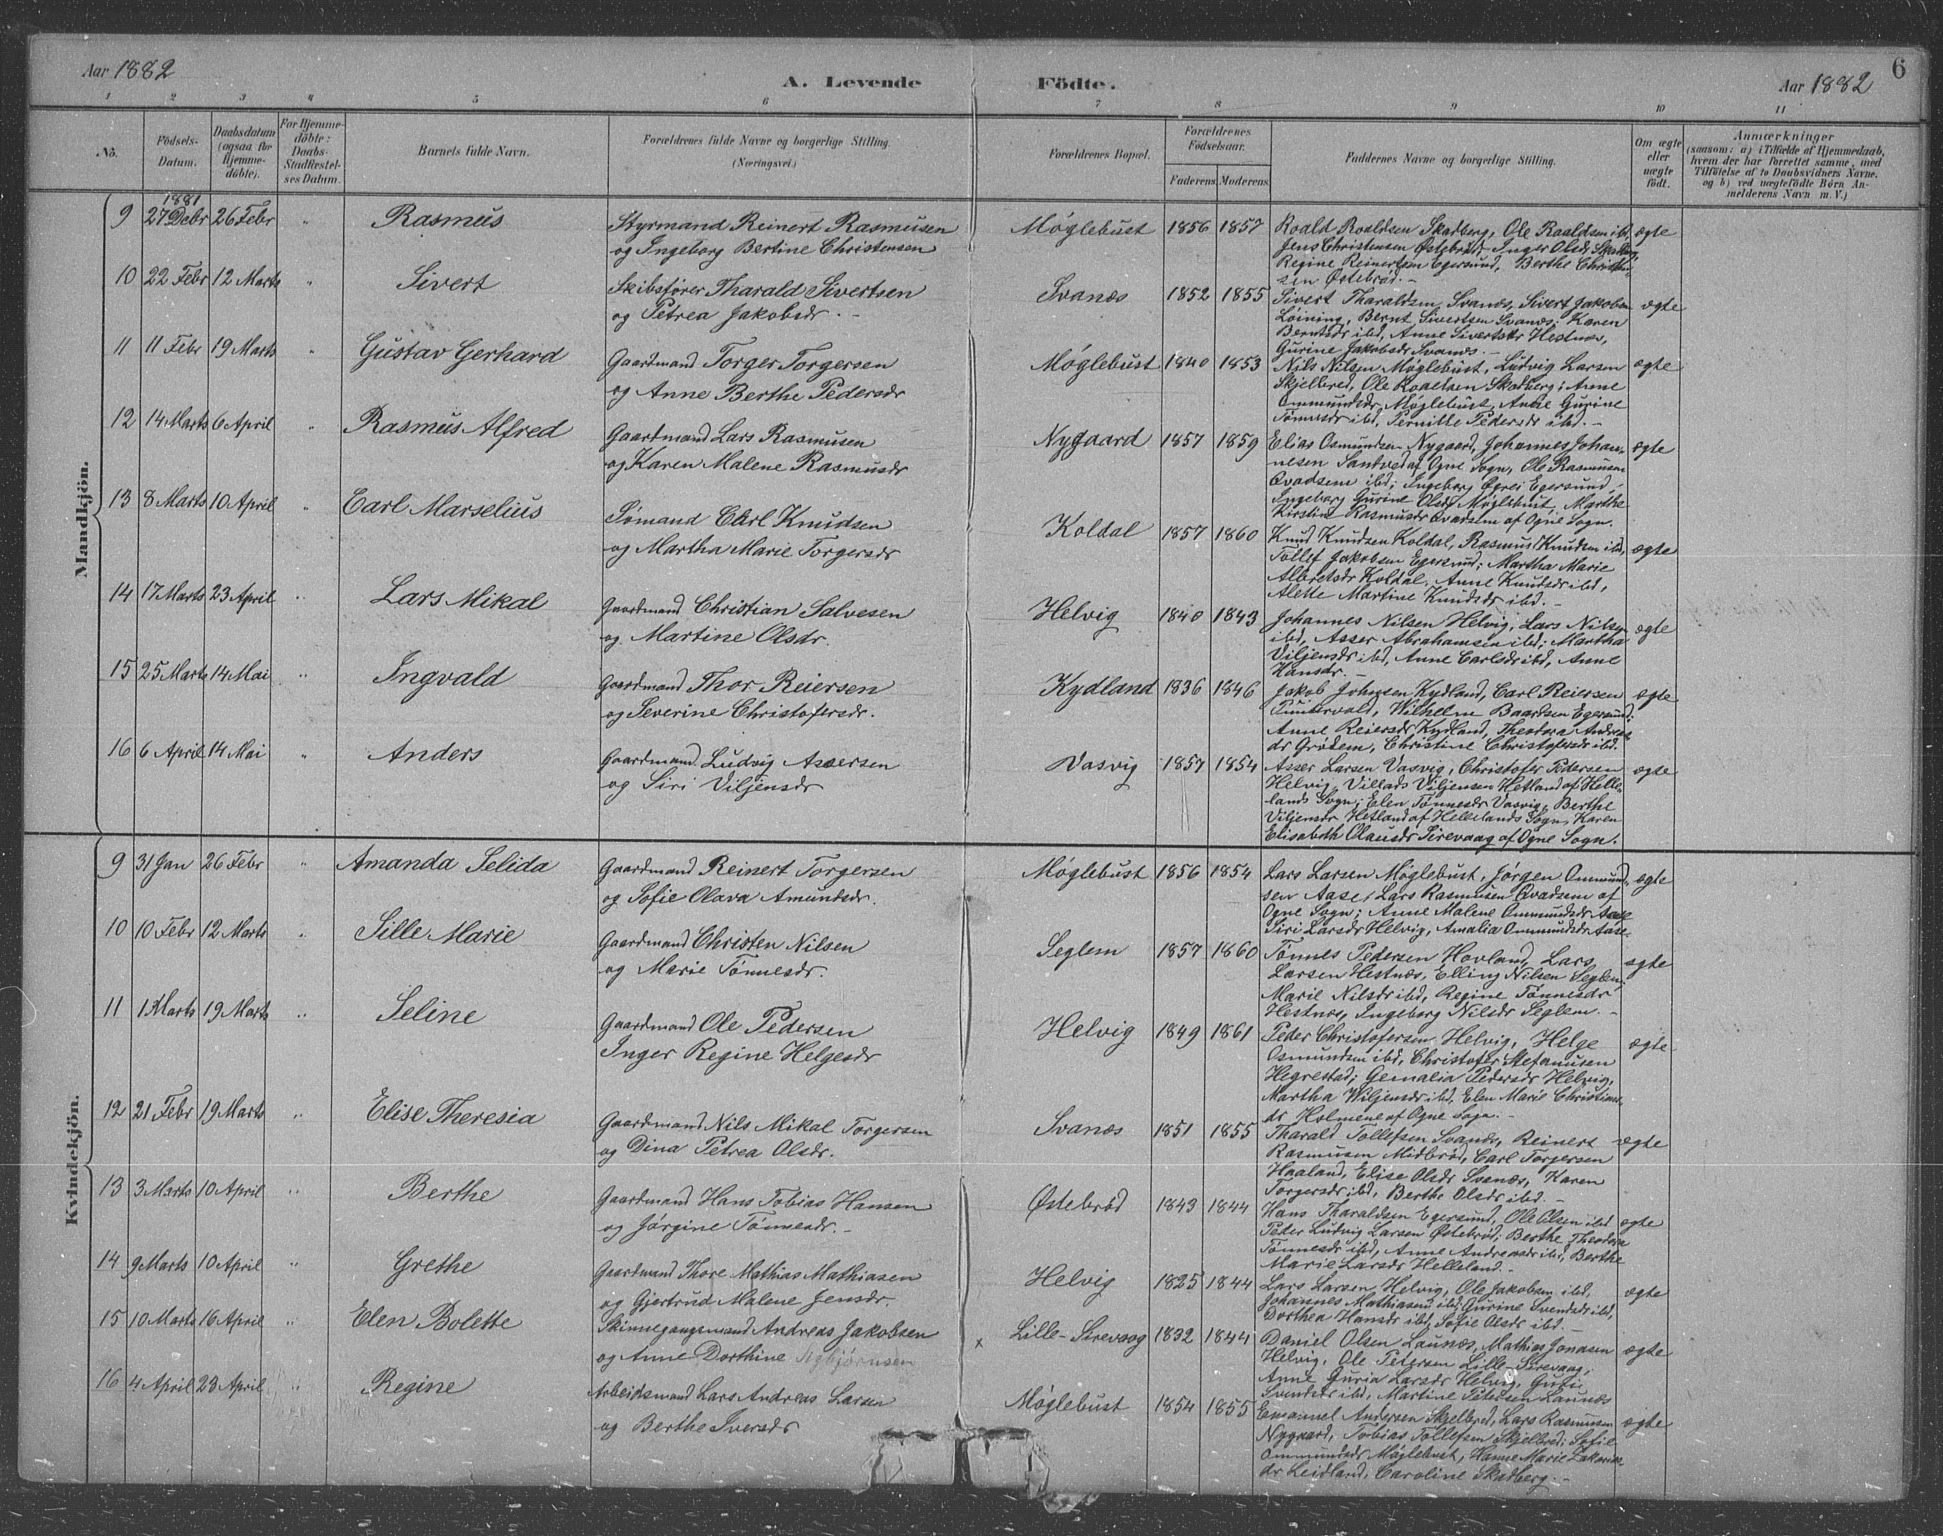 Aar 1882
A. Levende Födte.
Aar 1882
6
1 2 3 4 5 6 7 8 9 10 11
No.
Födsels-Datum.
Daabsdatum (ogsaa for Hjemmedöbte).
For Hjemmedöbte: Daabs-Stadfæstelses Datum.
Barnets fulde Navn.
Forældrenes fulde Navne og borgerlige Stilling.
(Næringsvei.)
Forældrenes Bopæl.
Forældrenes Födselsaar.
Faderens Moderens
Faddernes Navne og borgerlige Stilling.
Om ægte eller uægte födt.
Anmærkninger
(saasom: a) i Tilfælde af Hjemmedaab, hvem der har forrettet samme, med Tilföielse af to Daabsvidners Navne. og b) ved uægtefödte Börn Anmelderens Navn m. V.)
Mandkjön.
1881
9 27 Debr 26 Febr " Rasmus Styrmand Reinert Rasmusen Møglebust 1856 1857 Roald Roaldsen Skadberg, Ole Roaldsen ibd, ægte
og Ingeborg Bertine Christensen Jens Christensen Østebrød; Inger Olsdr Skadberg,
Regine Reinertsen Egersund, Berthe Christen-
sen Østebrød. -
10 22 Febr 12 Marts " Sivert Skibsfører Tharald Sivertsen Svanæs 1852 1855 Sivert Tharaldsen Svanæs, Sivert Jakobsen ægte
og Petrea Jakobsdr. - Løining, Bernt Sivertsen Svanæs; Karen
Berntsdr ibd, Anne Sivertsdr Hestnæs,
Gurine Jakobsdr Svanæs. -
11 11 Febr 19 Marts " Gustav Gerhard Gaardmand Torger Torgersen Møglebust 1840 1853 Nils Nilsen Møglebust, Ludvig Larsen ægte
og Anne Berthe Pedersdr Skjelbred, Ole Roaldsen Skadberg; Anne
Ommundsdr Møglebust, Anne Gurine
Tønnesdr ibd, Pernille Pedersdr ibd. -
12 14 Marts 6 April " Rasmus Alfred Gaardmand Lars Rasmusen Nygaard 1857 1859 Elias Osmundsen Nygaard, Johannes Johan- ægte
og Karen Malene Rasmusdr nesen Sandved af Ogne Sogn, Ole Rasmusen
Qvadsem ibd; Ingeborg Egersund,
Ingeborg Gurine Olsdr Møglebust, Martha
Kirstine Rasmusdr Qvadsem af Ogne Sogn.
13 8 Marts 10 April " Carl Marselius Sømand Carl Knudsen Koldal 1857 1860 Knud Knudsen Koldal, Rasmus Knudsen ibd, ægte
og Martha Marie Torgersdr Tollef Jakobsen Egersund; Martha Marie
Albretsdr Koldal, Anne Knudsdr ibd,
Alette Martine Knudsdr ibd. -
14 17 Marts 23 April " Lars Mikal Gaardmand Christian Salvesen Helvig 1840 1843 Johannes Nilsen Helvig, Lars Nilsen ægte
og Martine Olsdr. ibd, Asser Abrahamsen ibd; Martha
Viljensdr ibd, Anne Carlsdr ibd, Anne
Hansdr. -
15 25 Marts 14 Mai " Ingvald Gaardmand Thor Reiersen Kydland 1836 1846 Jakob Kydland, Carl Reiersen ægte
og Severine Christofersdr. Puntervold, Wilhelm Baardsen Egersund;
Anne Reiersdr Kydland, Theodora Andreas-
dr Grødem, Christine Christofersdr ibd.
16 6 April 14 Mai " Anders Gaardmand Ludvig Assersen Vasvig 1857 1854 Asser Larsen Vasvig, Christofer Pedersen ægte
og Siri Viljensdr Helvig, Villads Viljensen Hetland af Helle-
lands Sogn; Elen Tønnesdr Vasvig, Berthe
Viljensdr Hetland af Hellelands Sogn, Karen
Elisabeth Olausdr Sirevaag af Ogne Sogn.
Kvindekjön.
9 31 Jan 26 Febr " Amanda Selida Gaardmand Reinert Torgersen Møglebust 1856 1854 Lars Larsen Møglebust, Jørgen Ommund- ægte
og Sofie Olava Amundsdr. sen Aase, Lars Rasmusen Qvadsem af
Ogne Sogn; Anne Malene Ommundsdr Aase
Siri Larsdr Helvig, Amalia Ommundsdr Aase.
10 10 Febr 12 Marts " Sille Marie Gaardmand Christen Nilsen Seglem 1857 1860 Tønnes Pedersen Hovland, Lars ægte
og Marie Tønnesdr. Larsen Hestnæs, Elling Nilsen Seglem;
Marie Nilsdr ibd, Regine Tønnesdr
Hestnæs, Ingeborg Nilsdr Seglem. -
11 1 Marts 19 Marts " Seline Gaardmand Ole Pedersen Helvig 1849 1861 Peder Christofersen Helvig, Helge ægte
Inger Regine Helgesdr Osmundsen ibd, Christofer Stefanusen
Hegrestad; Gemalia Pedersdr Helvig,
Martha Wiljensdr ibd, Elen Marie Christian-
dr Holmene af Ogne Sogn. -
12 21 Febr 19 Marts " Elise Theresia Gaardmand Nils Mikal Torgersen Svanæs 1851 1855 Tharald Tollefsen Svanæs, Reinert ægte
og Dina Petrea Olsdr. Rasmusen Midbrød, Carl Torgersen
Haaland, Elise Olsdr Svanæs, Karen
Torgersdr ibd, Berthe Olsdr ibd. -
13 3 Marts 10 April " Berthe Gaardmand Hans Tobias Hansen Østebrød 1843 1844 Hans Tharaldsen Egersund, Ole Olsen ibd ægte
og Jørgine Tønnesdr. - Peder Ludvig Larsen Østebrød; Berthe Theodora
Tønnesdr ibd, Anne Andreasdr ibd, Berthe
Marie Larsdr Helleland. -
14 9 Marts 10 April " Grethe Gaardmand Thore Mathias Mathiasen Helvig 1825 1844 Lars Larsen Helvig, Ole Jakobsen ibd. ægte
og Gjertrud Malene Jensdr. Johannes Mathiasen ibd; Gurine Svendsdr ibd,
Dorthea Hansdr ibd, Sofie Olsdr ibd. -
15 10 Marts 16 April " Elen Bolette Skinnegangsmand Andreas Jakobsen x Lille-Sirevaag 1832 1844 Daniel Olsen Launæs, Mathias Jonasen ægte
og Anne Dorthine Asbjørnsen Helvig, Ole Petersen Lille-Sirevaag;
Anne Guria Larsdr Helvig, Guri
Svendsdr ibd, Martine Petersen Launæs
16 4 April 23 April " Regine Arbeidsmand Lars Andreas Larsen Møglebust 1854 1855 Emanuel Andersen Skjelbred, Lars Rasmusen ægte
og Berthe Iversdr Nygaard, Tobias Tollefsen Skjelbred; Sofie
Ommundsdr Møglebust, Hanne Marie Zakarias-
dr Leidland, Caroline Skadberg. -